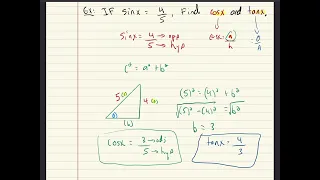 Ex: IF sinx = 4/5, Find cosx and tanx.
sinx = 4 → opp
5 → hyp
cosx = a/h
O/A
c² = a² + b²
5 (c)
4 (a)
(b)
(5)² = (4)² + b²
√(5)² - (4)² = √b²
b = 3
cosx = 3 → adj
5 → hyp
tanx = 4/3